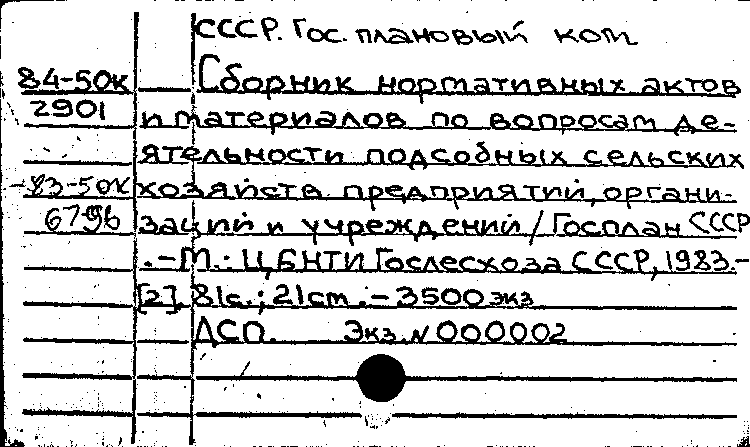 СССР. Гос. плановый ком
84-50к Сборник нормативных актов
2901 и материалов по вопросам де-
ятельности подсобных сельских
-83-50к хозяйств предприятий, органи-
6796 заций и учреждений / Госплан СССР
.-М.: ЦБНТИ Гослесхоза СССР, 1983.-
[2], 81с.; 21см.-3500экз
ДСП. Экз. N 000002